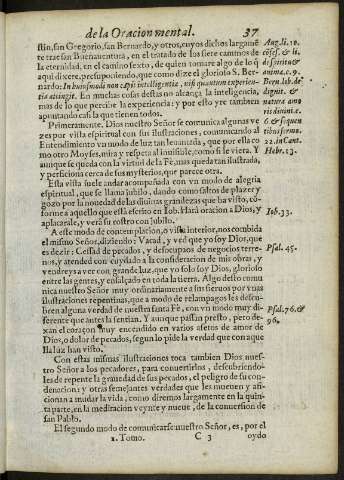 de la Oracion mental. 37
stin, san Gregorio, san Bernardo, y otros, cuyos dichos largamẽ
te trae san Buenaventura, en el tratado de los siete caminos de
la eternidad, en el camino sexto, de quien tomare algo de lo q̃
aqui dixere, presuponiendo, que como dize el glorioso S. Ber-
nardo: In huiusmodi non capit intelligentia, nisi quantum experien-
tia attingit. En muchas cosas destas no alcança la inteligencia,
mas de lo que percibe la experiencia: y por esto yre tambien
apuntando casi la que tienen todos.
Primeramente, Dios nuestro Señor se comunica algunas ve
zes por vista espiritual con sus ilustraciones, comunicando al
Entendimiento vn modo de luz tan levantada, que por ella co
mo otro Moyses, mira y respeta al inuisible, como si le viera. Y
aunque se queda con la virtud de la Fè, mas queda tan ilustrada,
y perficiona cerca de sus mysterios, que parece otra.
Esta vista suele andar acompañada con vn modo de alegria
espiritual, que se llama jubilo, dando como saltos de plazer y
gozo por la nouedad de las diuinas grandezas que ha visto, cõ-
forme a aquello que està escrito en Iob. Harà oracion a Dios, y
aplacarale, y verà su rostro con jubilo.
A este modo de contemplacion, o vista interior, nos combida
el mismo Señor, diziendo: Vacad, y ved que yo soy Dios, que
es dezir: Cessad de pecados, y desocupaos de negocios terre-
nos, y atended con cuydado a la consideracion de mis obras, y
vendreys a ver con grande luz, que yo solo soy Dios, glorioso
entre las gentes, y ensalçado en toda la tierra. Algo desto comu
nica nuestro Señor muy ordinariamente a sus sieruos por vnas
ilustraciones repentinas, que a modo de relampagos les descu-
bren alguna verdad de nuestra santa Fè, con vn modo muy di-
ferente que antes la sentian. Y aunque passan presto, pero de-
xan el coraçon muy encendido en varios afetos de amor de
Dios, o dolor de pecados, segun lo pide la verdad que con aque
lla luz han visto.
Con estas mismas ilustraciones toca tambien Dios nues-
tro Señor a los pecadores, para convertirlos, descubriendo-
les de repente la grauedad de sus pecados, el peligro de su con-
denacion: y otras semejantes verdades que les mueuen y afi-
cionan a mudar la vida, como diremos largamente en la quin-
ta parte, en la meditacion veynte y nueue, de la conuersion de
san Pablo.
El segundo modo de comunicarse nuestro Señor, es, por el
1. Tomo. C 3 oydo
Aug. li. 10.
cõfes. & li.
de spiritu &
anima. c. 9.
Bern. lib. de
dignit. &
natura amo
ris diuini. c.
6. & sequen
tibus serm.
22. in Cant.
Hebr. 13.
Iob. 33.
Psal. 45.
Psal. 76. &
96.